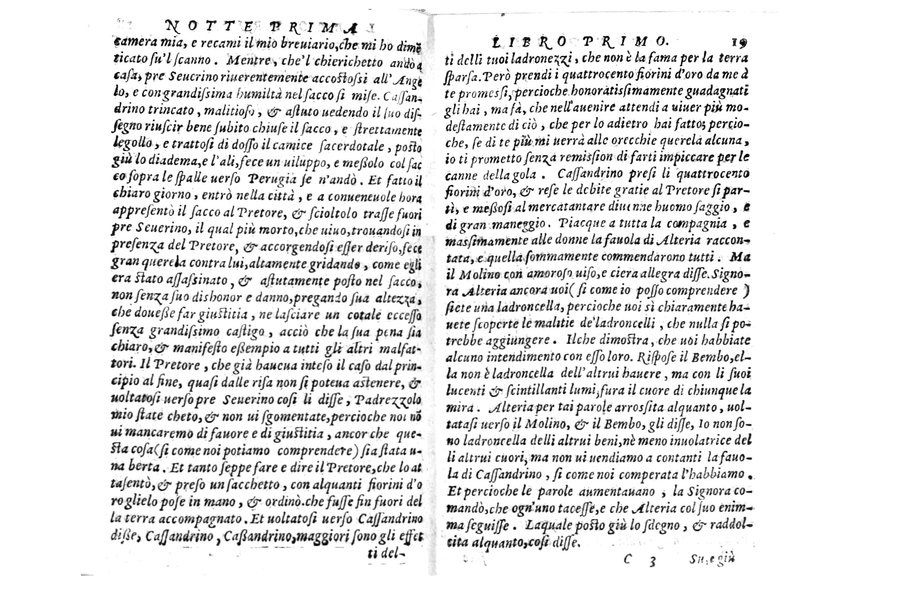 NOTTE PRIMA
camera mia, e recami il mio breuiario, che mi ho dimē
ticato su'l scanno. Mentre, che'l chierichetto andò a
casa, pre Seuerino riuerentemente accostossi all'Ange
lo, e con grandissima humiltà nel sacco si mise. Cassan-
drino trincato, malitioso, & astuto uedendo il suo dis-
segno riuscir bene subito chiuse il sacco, e strettamente
legollo, e trattosi di dosso il camice sacerdotale, posto
giù lo diadema, e l'ali, fece un uiluppo, e meßolo col sac
co sopra le spalle uerso Perugia se n'andò. Et fatto il
chiaro giorno, entrò nella città, e a conueneuole hora
appresentò il sacco al Pretore, & scioltolo trasse fuori
pre Seuerino, il qual più morto, che uiuo, trouandosi in
presenza del Pretore, & accorgendosi esser deriso, fece
gran querela contra lui, altamente gridando, come egli
era stato assassinato, & astutamente posto nel sacco,
non senza suo dishonor e danno, pregando sua altezza,
che doueße far giustitia, ne lasciare un cotale eccesso
senza grandissimo castigo, acciò che la sua pena sia
chiaro, & manifesto eßempio a tutti gli altri malfat-
tori. Il Pretore, che già haueua inteso il caso dal prin-
cipio al fine, quasi dalle risa non si poteua astenere, &
uoltatosi uerso pre Seuerino cosi li disse, Padrezzolo
mio state cheto, & non ui sgomentate, percioche noi nō
ui mancaremo di fauore e di giustitia, ancor che que-
sta cosa (si come noi potiamo comprendere) sia stata u-
na berta. Et tanto seppe fare e dire il Pretore, che lo at
tasentò, & preso un sacchetto, con alquanti fiorini d'o
ro glielo pose in mano, & ordinò che fusse fin fuori del
la terra accompagnato. Et uoltatosi uerso Cassandrino
diße, Cassandrino, Caßandrino, maggiori sono gli effet
ti del-
LIBRO PRIMO. 19
ti delli tuoi ladronezzi, che non è la fama per la terra
sparsa. Però prendi i quattrocento fiorini d'oro da me à
te promessi, percioche honoratissimamente guadagnati
gli hai, ma fà, che nell'auenire attendi a uiuer più mo-
destamente di ciò, che per lo adietro hai fatto; percio-
che, se di te più mi uerrà alle orecchie querela alcuna,
io ti prometto senza remission di farti impiccare per le
canne della gola. Cassandrino presi li quattrocento
fiorini d'oro, & rese le debite gratie al Pretore si par-
tì, e meßosi al mercatantare diuenne huomo saggio, e
di gran maneggio. Piacque a tutta la compagnia, e
massimamente alle donne la fauola di Alteria raccon-
tata, e quella sommamente commendarono tutti. Ma
il Molino con amoroso uiso, e ciera allegra disse. Signo-
ra Alteria ancora uoi (si come io posso comprendere)
siete una ladroncella, percioche uoi sì chiaramente ha-
uete scoperte le malitie de'ladroncelli, che nulla si po-
trebbe aggiungere. Ilche dimostra, che uoi habbiate
alcuno intendimento con esso loro. Rispose il Bembo, el-
la non è ladroncella dell'altrui hauere, ma con li suoi
lucenti & scintillanti lumi, fura il cuore di chiunque la
mira. Alteria per tai parole arrossita alquanto, uol-
tatasi uerso il Molino, & il Bembo, gli disse, Io non so-
no ladroncella delli altrui beni, nè meno inuolatrice del
li altrui cuori, ma non ui uendiamo a contanti la fauo-
la di Cassandrino, si come noi comperata l'habbiamo.
Et percioche le parole aumentauano, la Signora co-
mandò, che ogn'uno tacesse, e che Alteria col suo enim-
ma seguisse. Laquale posto giù lo sdegno, & raddol-
cita alquanto, cosi disse.
C 3 Su, e giù